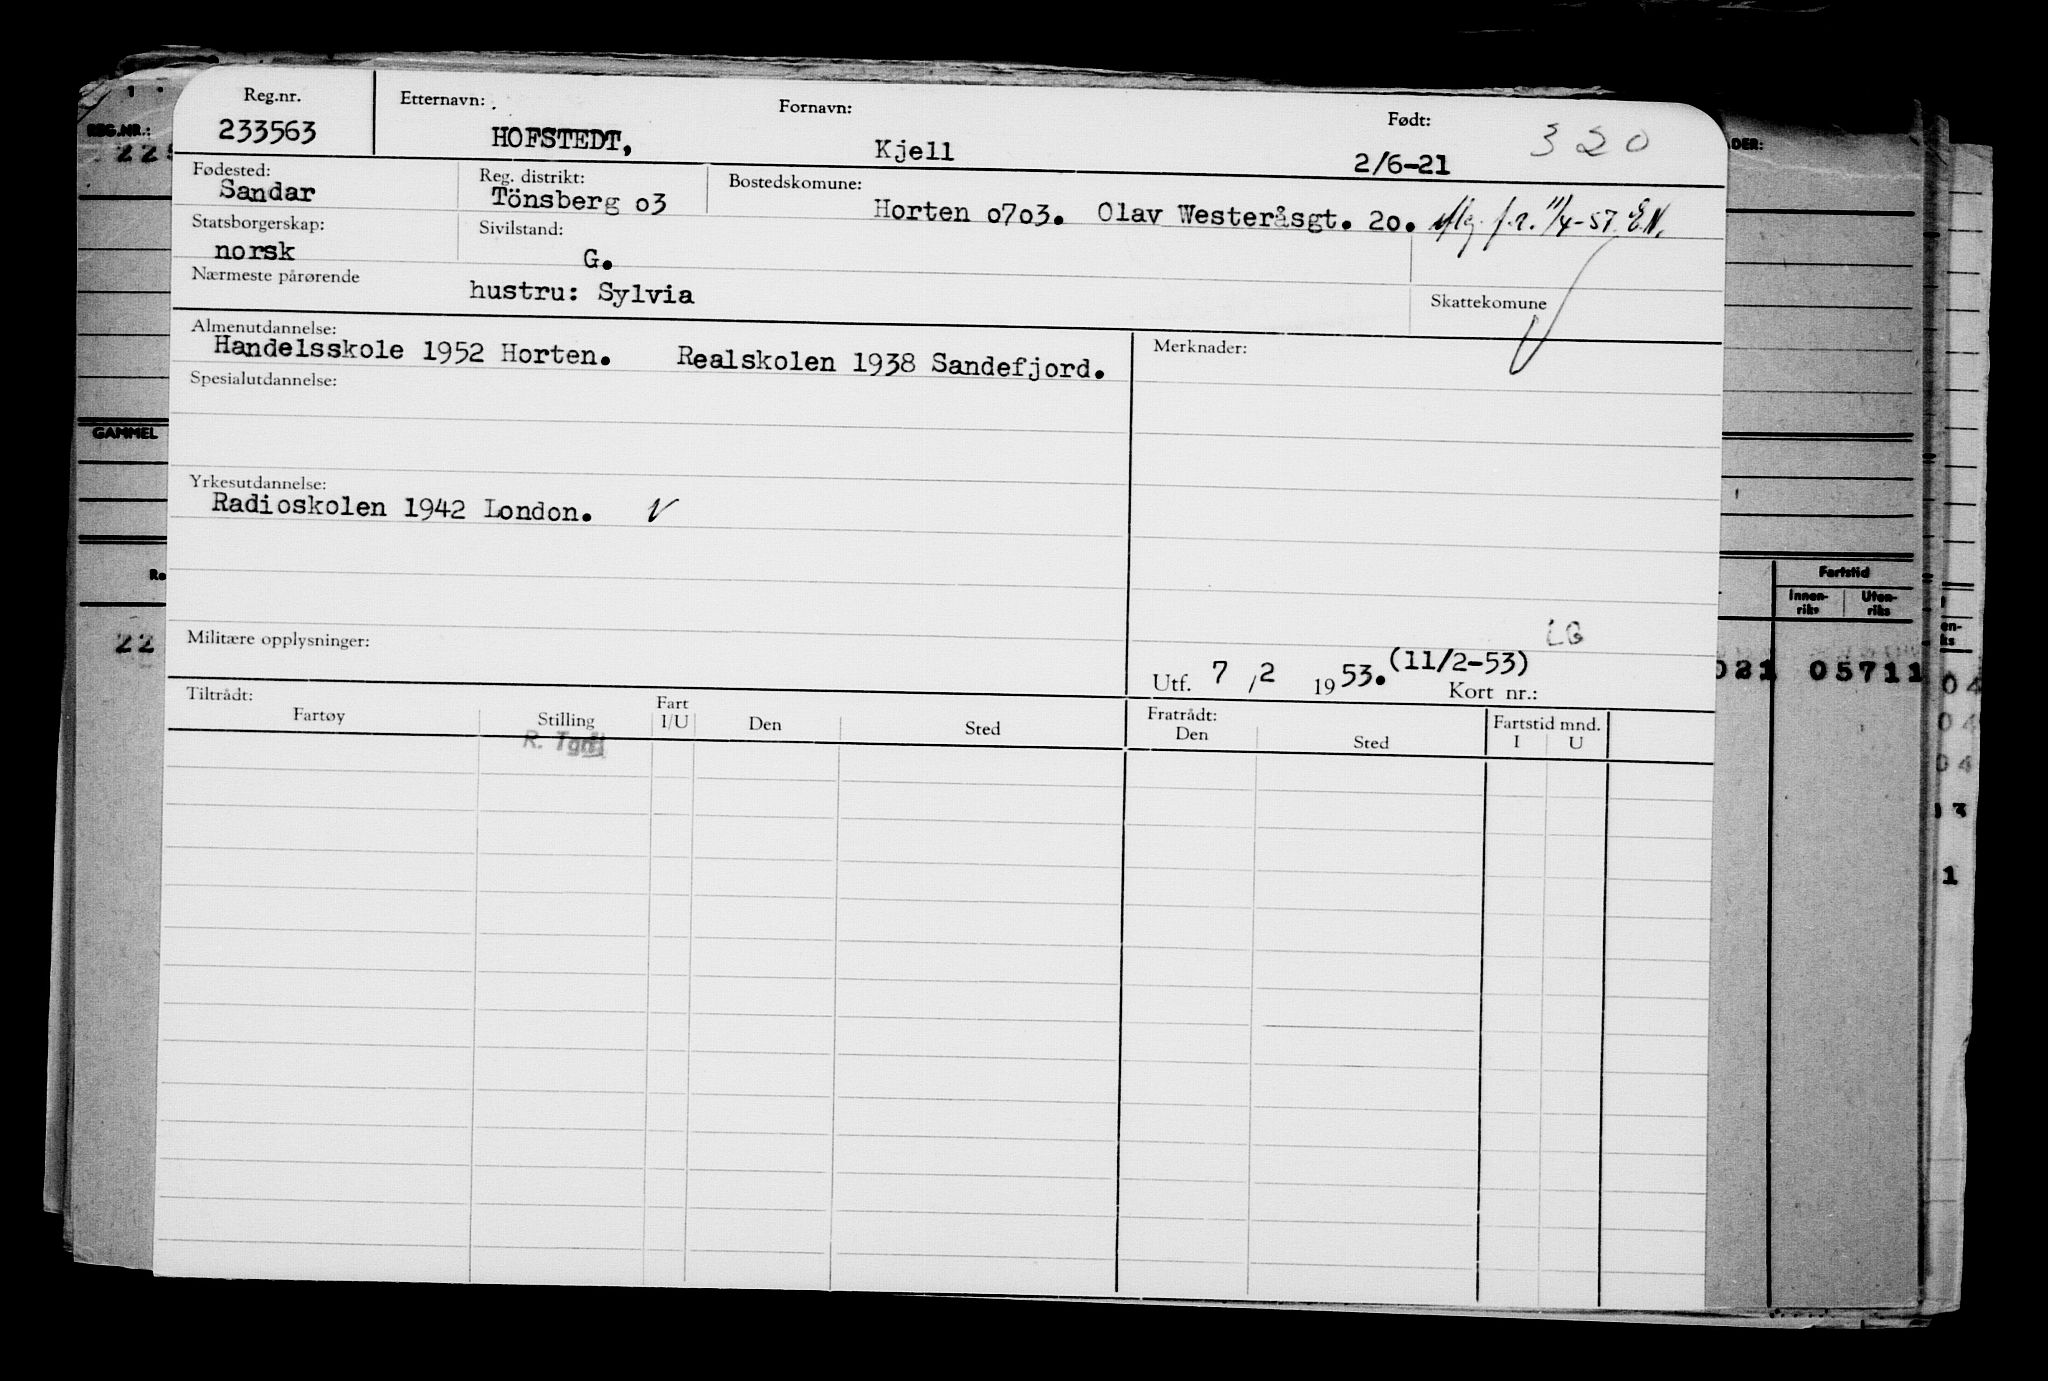 Reg.nr. Etternavn: Fornavn: Født:
233563 HOFSTEDT, Kjell 2/6-21 320
Fødested: Reg. distrikt: Bostedskomune:
Sandar Tönsberg o3 Horten o7o3. Olav Westeråsgt. 2o. 11/4-57. E.N.
Statsborgerskap: Sivilstand:
norsk G.
Nærmeste pårørende hustru: Sylvia Skattekomune
Almenutdannelse: Merknader:
Handelsskole 1952 Horten. Realskolen 1938 Sandefjord.
Spesialutdannelse:
Yrkesutdannelse:
Radioskolen 1942 London. V
Militære opplysninger:
LG
Utf. 7/2 1953. (11/2-53) Kort nr.:
Tiltrådt: Fratrådt:
Fartøy Stilling Fart I/U Den Sted Den Sted Fartstid mnd. I U
R. Tgrf
REG.NR.:
GAMMEL
22
DER:
Fartstid
Innen-riks Uten-riks
021 05711
04
04
04
13
1